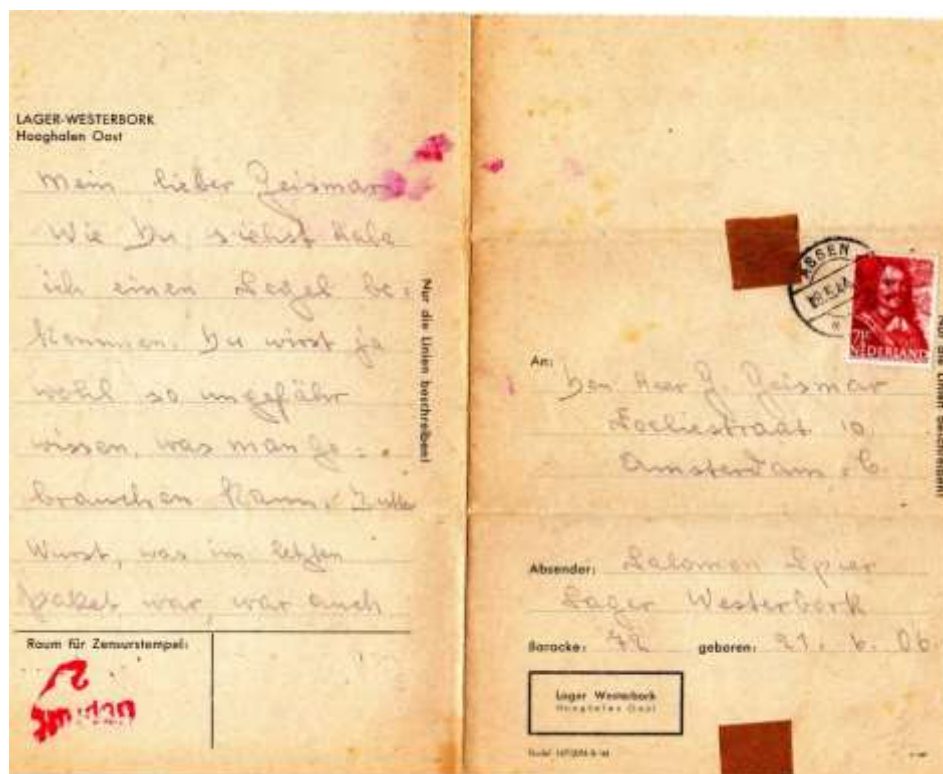 LAGER-WESTERBORK
Hooghalen Oost
Mein lieber Geismar
Wie Du siehst habe
ich einen Segel be-
kommen. Du wirst ja
wohl so ungefähr
wissen, was man ge-
brauchen kann.
Wurst, was im letzten
Paket war, war auch
Nur die Linien beschreiben!
Raum für Zensurstempel:
2
ASSEN
7½ c
NEDERLAND
Nur die Linien beschreiben!
An:
Den Heer G. Geismar
10
Amsterdam. C.
Absender: Salomon Spier
Lager Westerbork
Baracke: 72 geboren: 21. 6. 06
Lager Westerbork
Hooghalen Oost